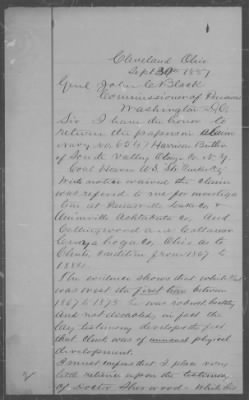 Cleveland Ohio
Sept 30th 1887
Genl John C Black
Commissioner of Pensions
Washington D.C.
Sir I have the honor to
return the papers in claim
Navy No. 6247 Harrison
of South Valley Otsego Co N.Y.
Coal Heaver U.S. Str
With notice waived the claim
was refered to me for investiga
tion at Painesville Lake Co &
Ashtabula Co. and
Collingwood and
Cuyahoga Co, Ohio as to
condition from 1867 to
1884.
The evidence shows that while
was west the first time between
1867 & 1875 he was robust healthy
and not disabled, in fact the
lay testimony develops the fact
that was of unusual physical
development.
I must confess that I place very
little reliance upon the testimony
of Doctor Sherwood - While his